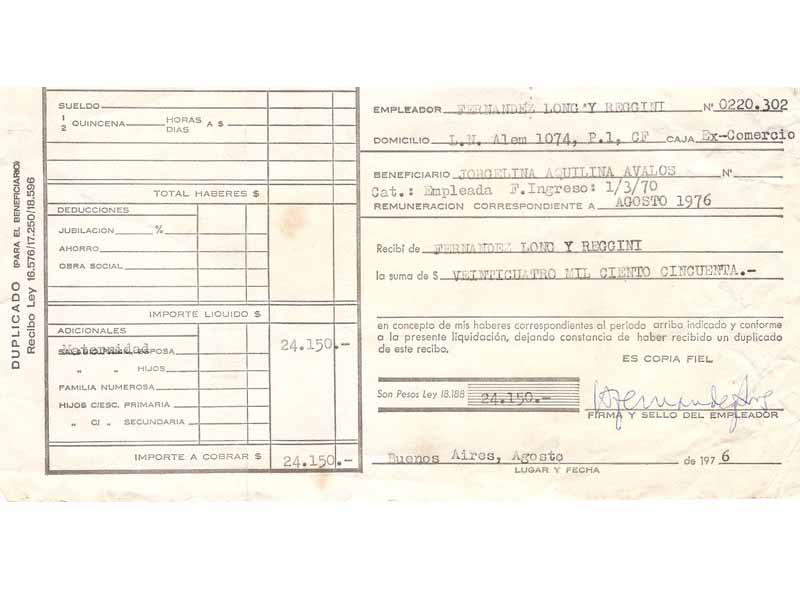 DUPLICADO (PARA EL BENEFICIARIO)
Recibo Ley 16.576/17.250/18.596
SUELDO
1/2 QUINCENA HORAS DIAS A $
TOTAL HABERES $
DEDUCCIONES
JUBILACION %
AHORRO
OBRA SOCIAL
IMPORTE LIQUIDO $
ADICIONALES
Maternidad ESPOSA 24.150.-
" " HIJOS
FAMILIA NUMEROSA
HIJOS C/ESC. PRIMARIA
" C/ " SECUNDARIA
IMPORTE A COBRAR $ 24.150.-
EMPLEADOR FERNANDEZ LONG Y REGGINI Nº 0220.302
DOMICILIO L.N. Alem 1074, P.1, CF CAJA Ex-Comercio
BENEFICIARIO JORGELINA AQUILINA AVALOS Nº
Cat.: Empleada F.Ingreso: 1/3/70
REMUNERACION CORRESPONDIENTE A AGOSTO 1976
Recibí de FERNANDEZ LONG Y REGGINI
la suma de $ VEINTICUATRO MIL CIENTO CINCUENTA.-
en concepto de mis haberes correspondientes al período arriba indicado y conforme
a la presente liquidación, dejando constancia de haber recibido un duplicado
de este recibo.
ES COPIA FIEL
Son Pesos Ley 18.188 24.150.-
FIRMA Y SELLO DEL EMPLEADOR
Buenos Aires, Agosto de 1976
LUGAR Y FECHA